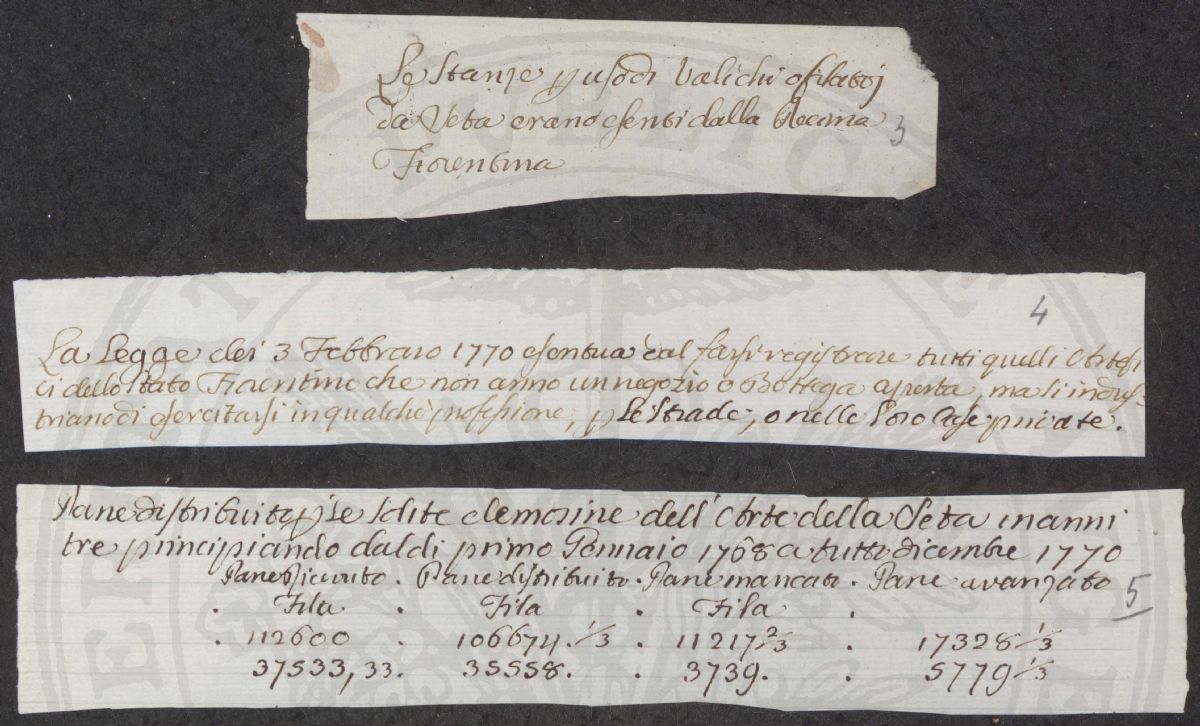 Le Stanze p uso di Valichi o filatoj
da Seta erano esenti dalla Decima
Fiorentina
3
4
La Legge dei 3 Febbraro 1770 esentua dal farsi registrare tutti quelli Artefi
ci dello Stato Fiorentino che non anno un negozio o Bottega aperta, ma si indus-
triano di esercitarsi in qualche professione, p le Strade, o nelle loro Case private.
Pane distribuito p le solite elemosine dell' Arte della Seta in anni
tre principiando dal di primo Gennaio 1768 a tutto dicembre 1770
Pane Ricevuto . Pane distribuito . Pane mancato . Pane avanzato
5
. Fila . Fila . Fila .
. 112600 . 106674. 1/3 . 11217 2/3 . 17328 1/3
37533,33. 35558. . 3739. . 5779 1/3